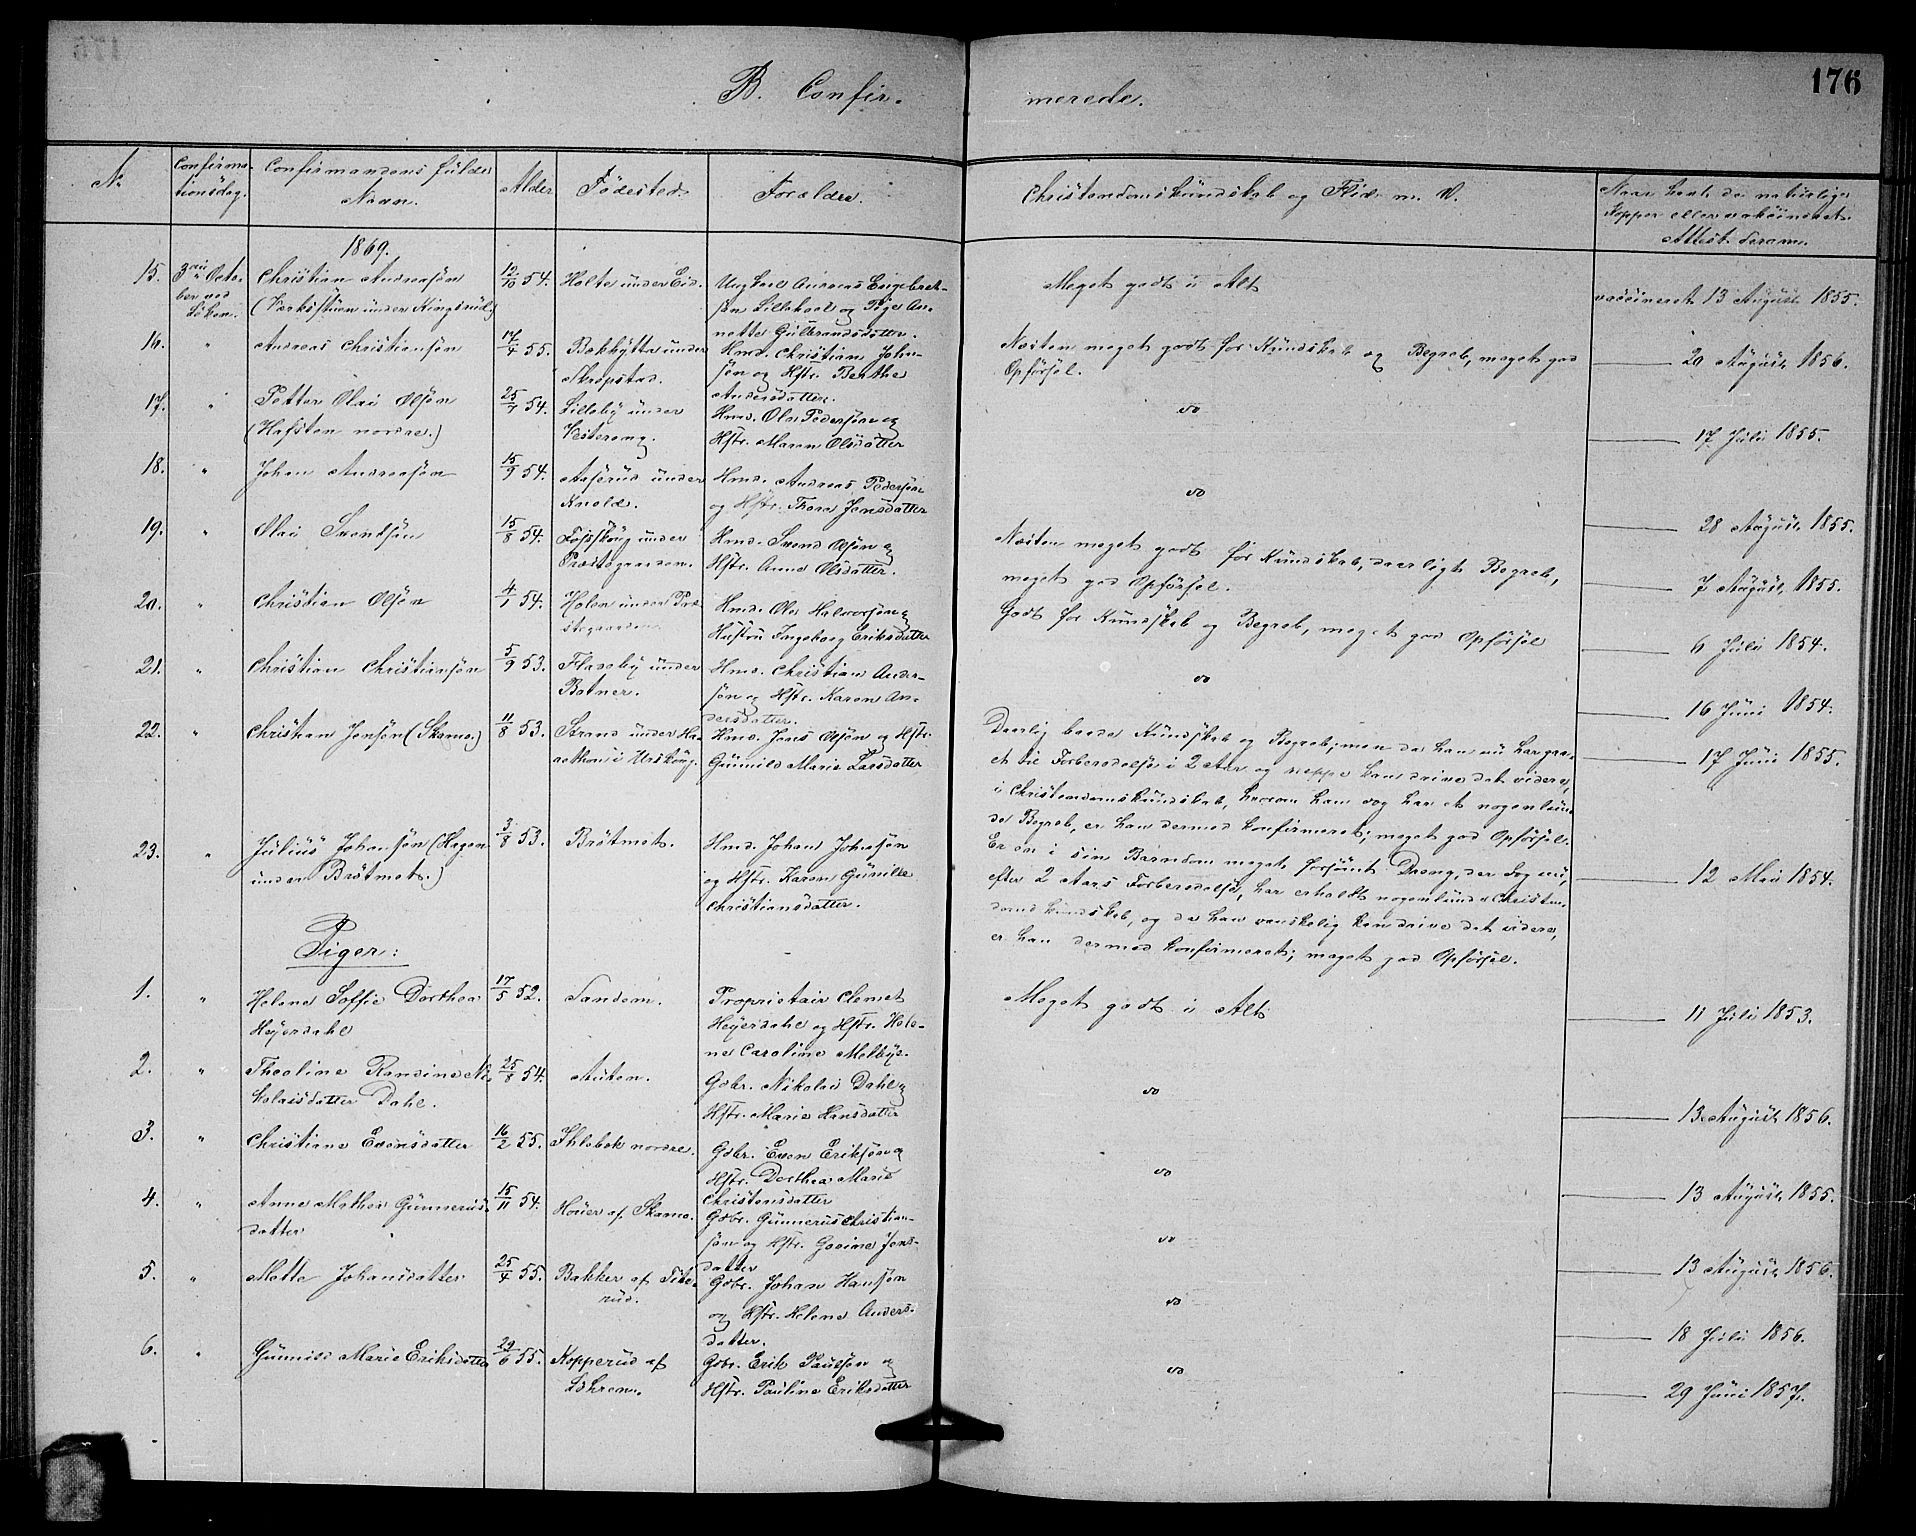 176
B. Confir-
merede.
No
Confirma-
tionsdag.
Confirmandens fulde
Navn.
Alder
Fødested.
Forældre.
Christendomskundskab og Flid m. V.
Naar havt de naturlige
Kopper eller vakcineret
Attest derom.
1869.
15.
3die Octo-
ber ved
Christian Andreasøn
(Værksstuen under Kingsrud)
12/10 54.
Holte under Eid.
Ungkarl Andreas Engebret-
søn Lillehael og Pige An-
nette Gulbrandsdatter.
Meget godt i Alt
vaccineret 13 August 1855.
16.
"
Andreas Christiansøn
17/4 55.
Bakhytta under
Skrepstad.
Hmd. Christian Johan-
søn og Hstr. Berthe
Andersdatter.
Næsten meget godt for Kundskab og Begreb, meget god
Opførsel.
20 August 1856.
17.
"
Petter Olai Olsøn
(Hafsten nordre.)
25/7 54.
Lilleby under
Vestereng.
Hmd. Ole Pedersøn og
Hstr. Maren Olsdatter
do
17 Juli 1855.
18.
"
Johan Andreasøn
15/9 54.
Aaserud under
Knold.
Hmd. Andreas Pedersøn
og Hstr. Thora Jensdatter
do
28 August 1855.
19.
"
Olai Svendsøn
15/8 54.
under
Præstegaarden.
Hmd. Svend Olsøn og
Hstr. Anne Olsdatter.
Næsten meget godt for Kundskab, daarligt Begreb,
meget god Opførsel.
7 August 1855.
20.
"
Christian Olsøn
4/1 54.
Holen under Præ-
stegaarden
Hmd. Ole Halvorsøn og
Hustru Ingeborg Eriksdatter
Godt for Kundskab og Begreb, meget god Opførsel
6 Juli 1854.
21.
"
Christian Christiansøn
5/9 53.
Flaseby under
Botner.
Hmd. Christian Ander-
søn og Hstr. Karen An-
dersdatter.
do
16 Juni 1854.
22.
"
Christian Jensøn (Skamo.)
11/8 53.
Strand under Ha-
nethon i Urskoug.
Hmd. Jens Olsøn og Hstr.
Gunnild Marie Larsdatter
Daarlig baade Kundskab og Begreb; men da han nu har gaa-
et til Forberedelse i 2 Aar og neppe kan drive det videre,
i Christendomskundskab, hvorom han dog har et nogenlun-
de Begreb, er han dermed konfirmeret; meget god Opførsel.
17 Juni 1855.
23.
"
Julius Johansøn (Hagen
under Brøtmet.)
3/8 53.
Brøtmet.
Hmd. Johan Johnsøn
og Hstr. Karen Gunilde
Christiansdatter.
Er en i sin Barndom meget forsømt Dreng, der dog nu,
efter 2 Aars Forberedelse, har erholdt nogenlunde Christen-
domskundskab, og da han vanskelig kan drive det videre,
er han dermed konfirmeret; meget god Opførsel.
12 Mai 1854.
Piger:
1.
"
Helene Soffie Dorthea
Heyerdahl
17/5 52.
Sandem.
Proprietair Clemet
Heyerdahl og Hstr. Hele-
ne Caroline Melbye.
Meget godt i Alt
11 Juli 1853.
2.
"
Theoline Randine Ni-
kolaisdatter Dahl.
25/8 54.
Auten.
Gdbr. Nikolai Dahl og
Hstr. Marie Hansdatter
do
13 August 1856.
3.
"
Christiane Evensdatter
16/2 55.
Ihlebek nordre.
Gdbr. Even Eriksøn og
Hstr. Dorthea Marie
Christensdatter
do
13 August 1855.
4.
"
Anne Mathea Gunnerius-
datter
15/11 54.
Houer af Skamo.
Gdbr. Gunnerus Christian-
søn og Hstr. Govine Jens-
datter
do
13 August 1856.
5.
"
Mette Johansdatter
25/4 55.
Bakker af Tite-
rud.
Gdbr. Johan Hansøn
og Hstr. Helene Anders-
datter.
do
18 Juli 1856.
6.
"
Gunnild Marie Eriksdatter
29/6 55.
Kopperud af
Løkren.
Gdbr. Erik Paulsøn og
Hstr. Pauline Eriksdatter
do
29 Juni 1857.